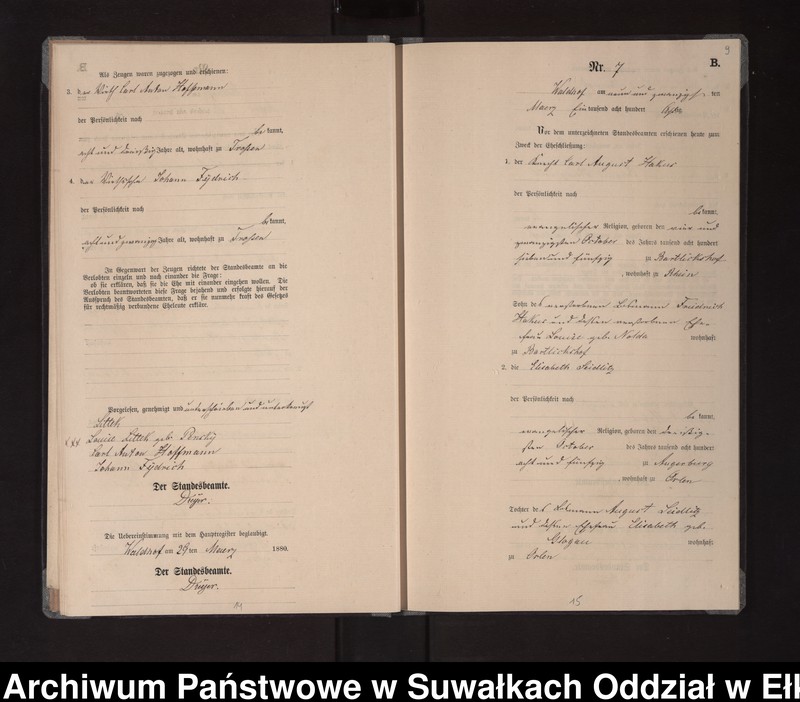 Als Zeugen waren zugezogen und erschienen:
3. der Wirth Carl Anton Hoffmann
der Persönlichkeit nach
be kannt,
acht und dreißig Jahre alt, wohnhaft zu Trossen
4. der Johann Fydrich
der Persönlichkeit nach
be kannt,
acht und zwanzig Jahre alt, wohnhaft zu Trossen
In Gegenwart der Zeugen richtete der Standesbeamte an die
Verlobten einzeln und nach einander die Frage:
ob sie erklären, daß sie die Ehe mit einander eingehen wollen. Die
Verlobten beantworteten diese Frage bejahend und erfolgte hierauf der
Ausspruch des Standesbeamten, daß er sie nunmehr kraft des Gesetzes
für rechtmäßig verbundene Eheleute erkläre.
Vorgelesen, genehmigt und unterschrieben und unterkreuzt
Littek
xxx Louise Littek geb.
Carl Anton Hoffmann
Johann Fydrich
Der Standesbeamte.
Dreyer.
Die Uebereinstimmung mit dem Hauptregister beglaubigt.
Waldhof am 29 ten Maerz 1880.
Der Standesbeamte.
Dreyer.
9
Nr. 7 B.
Waldhof am neun und zwanzigsten
Maerz Eintausend acht hundert
Vor dem unterzeichneten Standesbeamten erschienen heute zum
Zweck der Eheschließung:
1. der Knecht Carl August Hakus
der Persönlichkeit nach
be kannt,
evangelischer Religion, geboren den vier und
zwanzigsten October des Jahres tausend acht hundert
sieben und fünfzig zu Bartlickshof
, wohnhaft zu Rhein
Sohn des verstorbenen Losmann Friedrich
Hakus und dessen verstorbenen Ehe-
frau Louise geb. Nolda wohnhaft
zu Bartlickshof
2. die Elisabeth Seidlitz
der Persönlichkeit nach
be kannt,
evangelischer Religion, geboren den dreißig-
sten October des Jahres tausend acht hundert
acht und fünfzig zu Angerburg
, wohnhaft zu Orlen
Tochter des Losmann August Seidlitz
und dessen Ehefrau Elisabeth geb.
Glogau wohnhaft
zu Orlen
15
Archiwum Państwowe w Suwałkach Oddział w Ełk